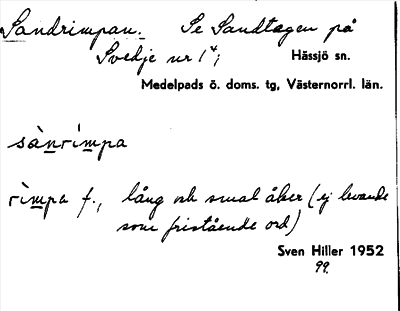 Sandrimpan. Se Sandtagen på
Svedje nr 1⁴;
Hässjö sn.
Medelpads ö. doms. tg, Västernorrl. län.
sànrìmpa
rìmpa f., lång och smal åker (ej levande
som fristående ord)
Sven Hiller 1952
99.